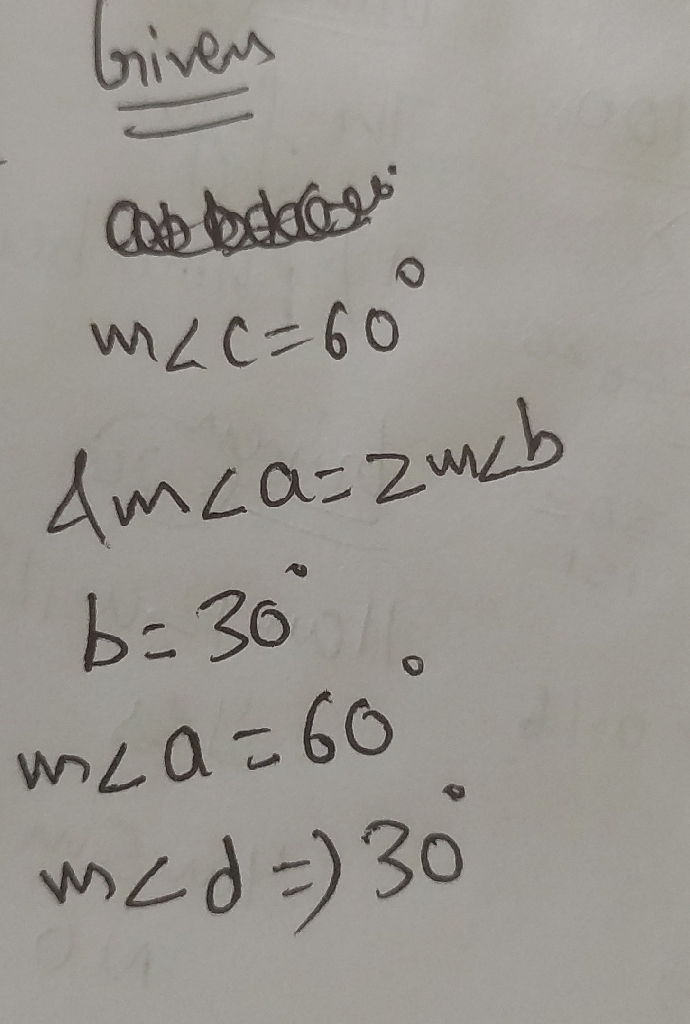 Given
m∠c=60°
4m∠a=2m∠b
b=30°
m∠a=60°
m∠d=)30°